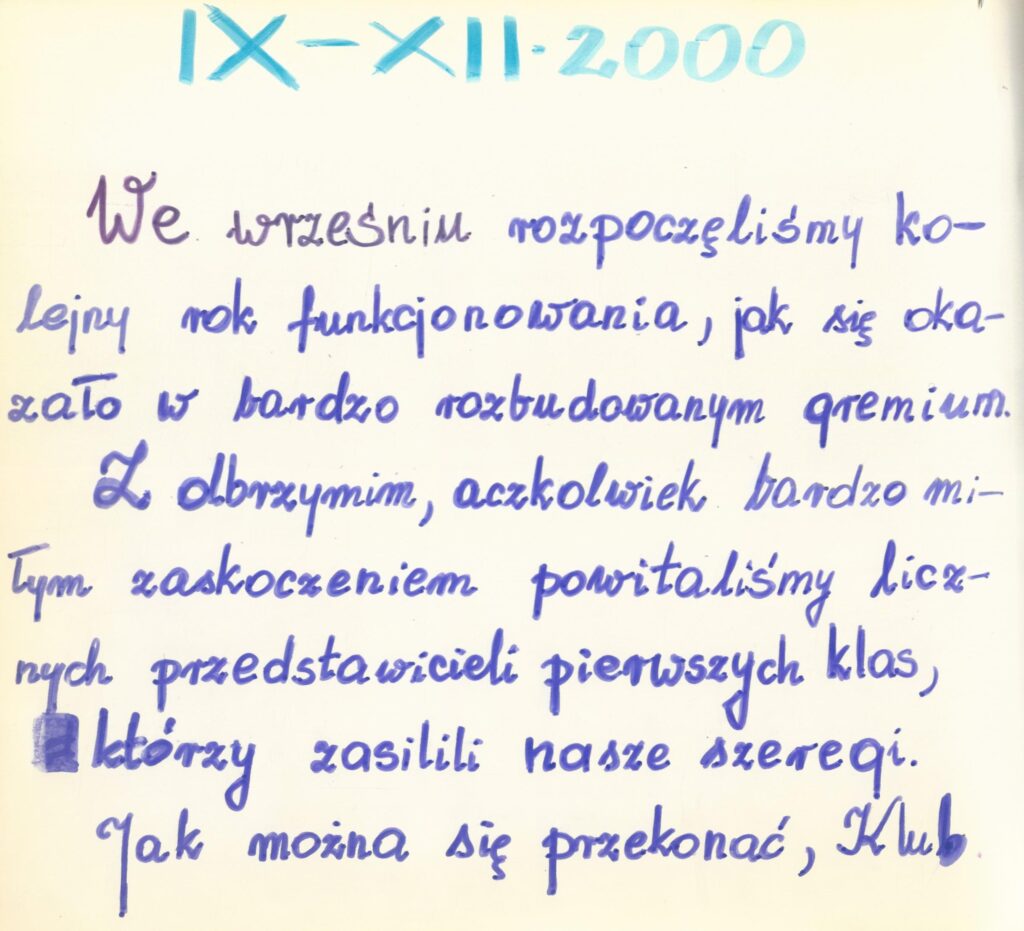 IX-XII.2000
We wrześniu rozpoczęliśmy ko-
lejny rok funkcjonowania, jak się oka-
zało w bardzo rozbudowanym gremium.
Z olbrzymim, aczkolwiek bardzo mi-
łym zaskoczeniem powitaliśmy licz-
nych przedstawicieli pierwszych klas,
którzy zasilili nasze szeregi.
Jak można się przekonać, Klub